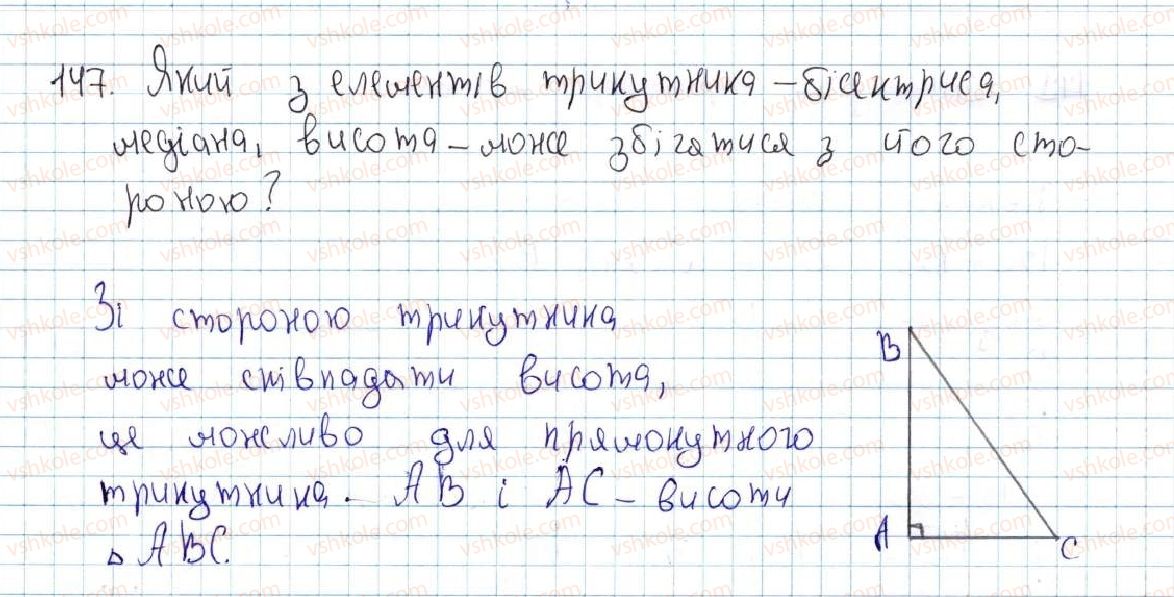 147. Який з елементів трикутника – бісектриса,
медіана, висота – може збігатися з його сто-
роною?
Зі стороною трикутника
може співпадати висота,
це можливо для прямокутного
трикутника. AB і AC – висоти
△ ABC.
B
A
C